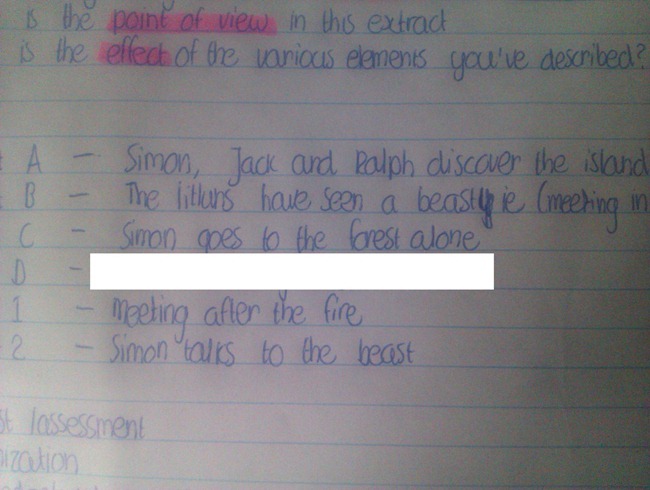 is the point of view in this extract
is the effect of the various elements you've described?
A - Simon, Jack and Ralph discover the island
B - The litluns have seen a beasty ie (meeting in
C - Simon goes to the forest alone
D -
1 - Meeting after the fire
2 - Simon talks to the beast
st lassessment
ization